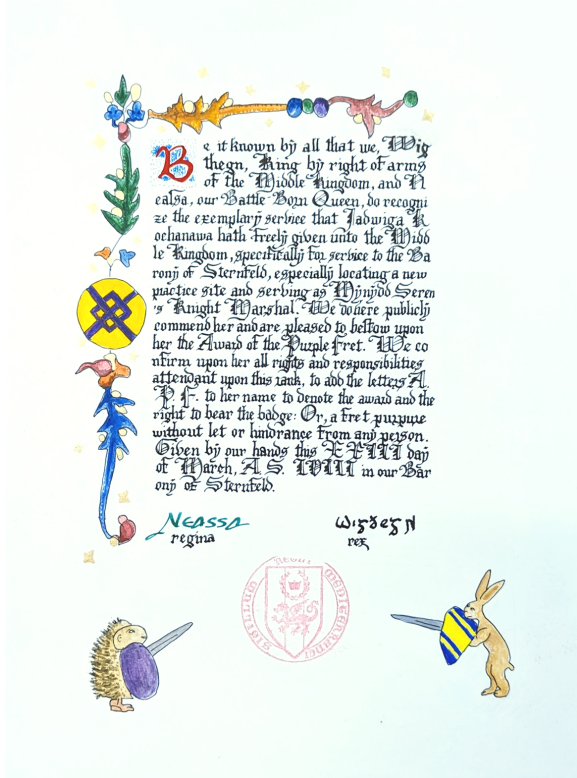 Be it known by all that we, Wig
thegn, King by right of arms
of the Middle Kingdom, and N
ealsa, our Battle Born Queen, do recogni
ze the exemplary service that Jadwiga K
ochanawa hath freely given unto the Midd
le Kingdom, specifically for service to the Ba
rony of Sternfeld, especially locating a new
practice site and serving as Mynydd Seren
's Knight Marshal. We do here publicly
commend her and are pleased to bestow upon
her the Award of the Purple Fret. We co
nfirm upon her all rights and responsibilities
attendant upon this rank, to add the letters A.
P. F. to her name to denote the award and the
right to bear the badge: Or, a fret purpure
without let or hindrance from any person.
Given by our hands this XXIII day
of March, A.S. LVIII in our Bar
ony of Sternfeld.
Neassa
regina
Wigþegn
rex
SIGILLUM REGNI MEDITERRANEI